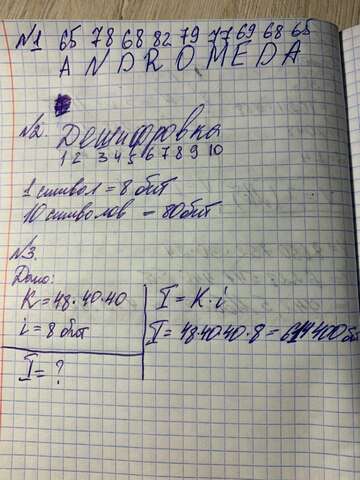 №1 65 78 68 82 79 77 69 68 65
A N D R O M E D A
№2. Дешифровка
1 2 3 4 5 6 7 8 9 10
1 символ = 8 бит
10 символов = 80бит
№3.
Дано:
K = 48 · 40 · 40
i = 8 бит
I = ?
I = K · i
I = 48·40·40 · 8 = 614400 би